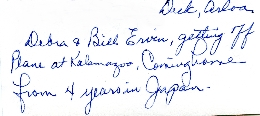 Dick, Arloa
Debra & Bill Ervin, getting off
Plane at Kalamazoo, Coming home
from 4 years in Japan.